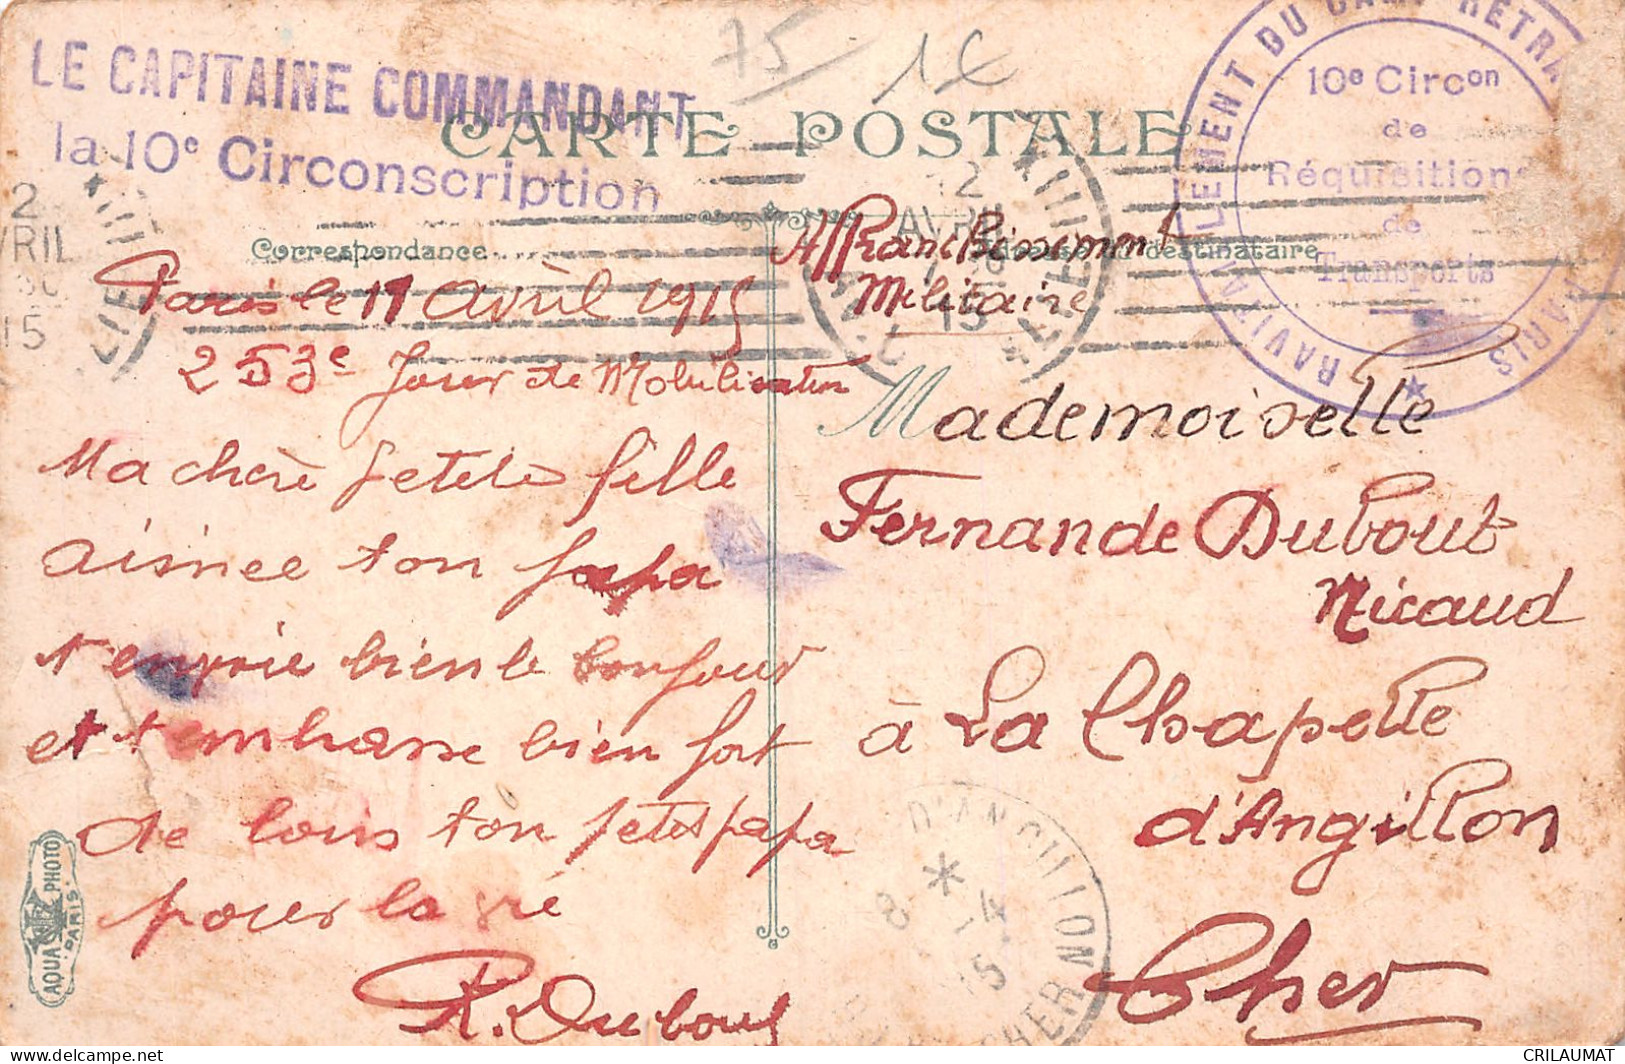 75
1€
LE CAPITAINE COMMANDANT
la 10e Circonscription
CARTE POSTALE
Correspondance
destinataire
Affranchissement
Militaire
RAVITAILLEMENT DU CAMP RETRA
PARIS
10e Circon
de
Réquisitions
de
Transports
12
AVRIL
15
2
VRIL
15
Paris le 11 avril 1915
253e Jour de Mobilisation
Ma chère petite fille
aisnee ton papa
t'envoie bien le bonjour
et t'embrasse bien fort
de loin ton petit papa
pour la vie
R. Dubout
Mademoiselle
Fernande Dubout
Micaud
à La Chapelle
d'Angillon
Cher
D'ANGILLON
CHER
8
-4
15
AQUA PHOTO
PARIS
CRILAUMAT